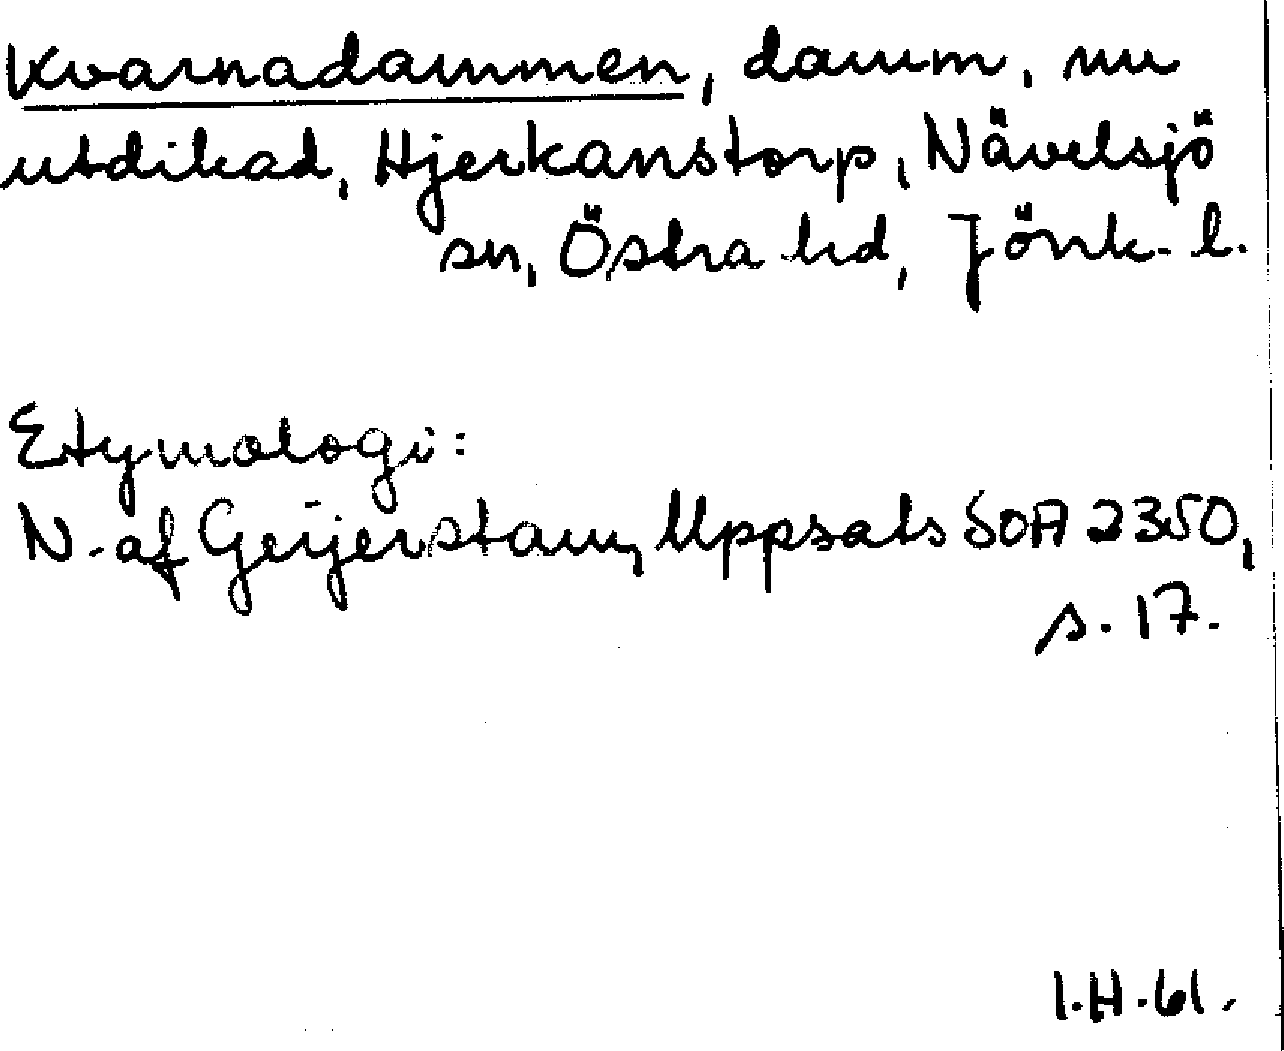 Kvarnadammen, damm, nu
utdikad, Hjerkanstorp, Nävelsjö
sn, Östra hd, Jönk. l.
Etymologi:
N. af Geijerstam, Uppsats SOA 2350,
s. 17.
I.H.61.